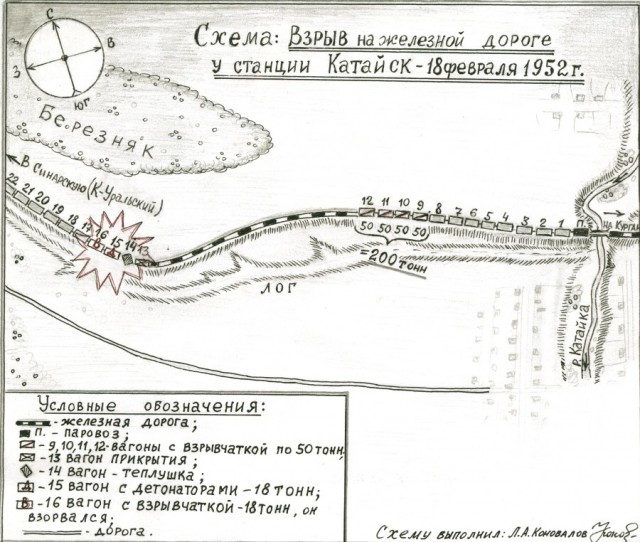 Схема: Взрыв на железной дороге
у станции Катайск - 18 февраля 1952 г.
С
В
З
Юг
Березняк
В Синарскую (К-Уральский)
22 21 20 19 18 17 16 15 14
12 11 10 9 8 7 6 5 4 3 2 1 П
50 50 50 50
=200 тонн
на Курган
лог
р. Катайка
Условные обозначения:
- железная дорога;
П. - паровоз;
- 9,10,11,12- вагоны с взрывчаткой по 50 тонн,
- 13 вагон прикрытия;
- 14 вагон - теплушка;
Д - 15 вагон с детонаторами - 18 тонн;
В - 16 вагон с взрывчаткой - 18 тонн, он
взорвался;
- дорога.
Схему выполнил: Л.А. Коновалов